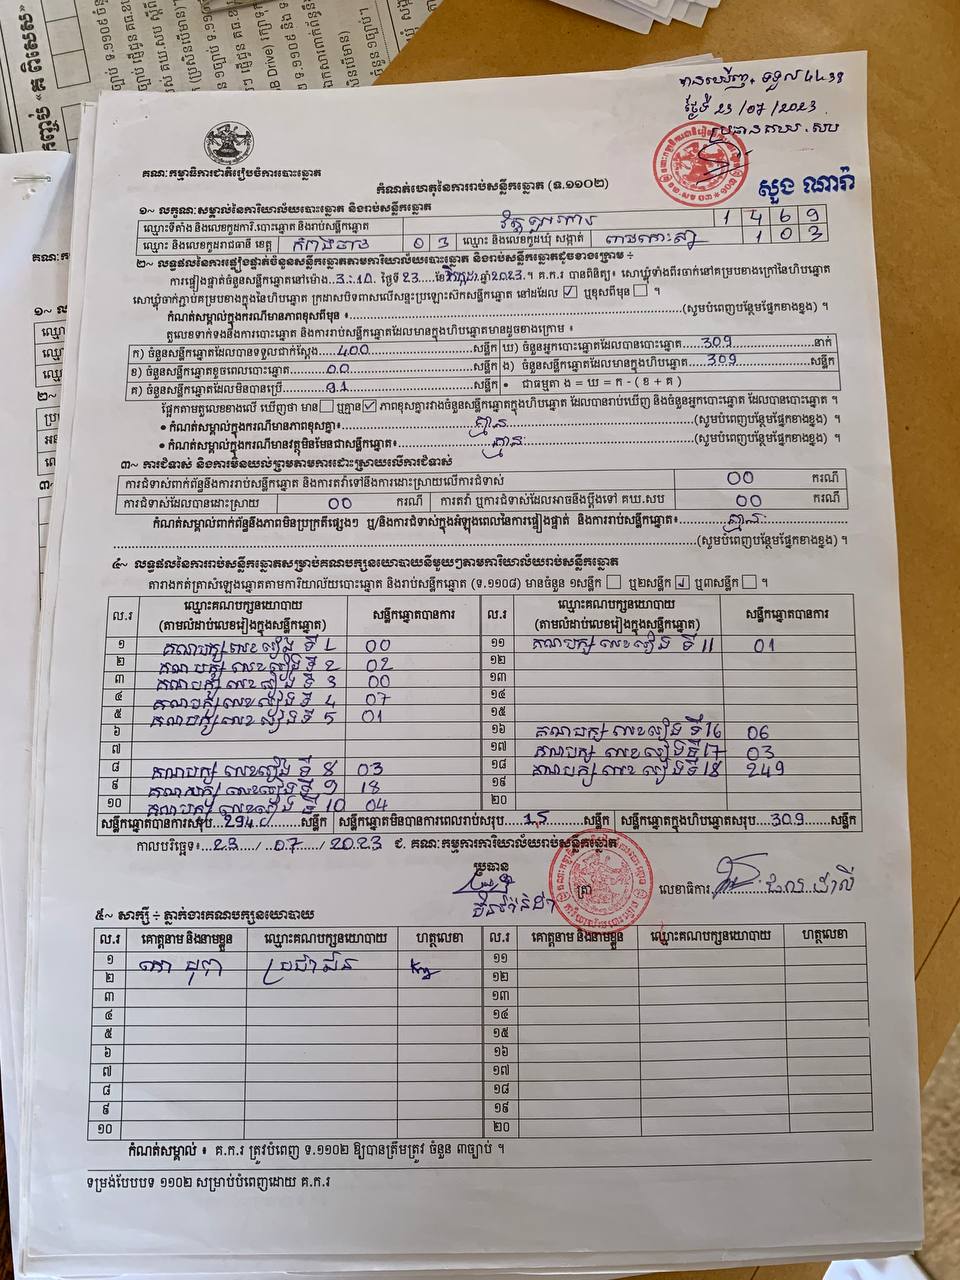 បានឃើញ. ទទួល 4438
ថ្ងៃទី 23/07/2023
ប្រធាន គឃ.សប
សួង ណារ៉ា
គណៈកម្មាធិការជាតិរៀបចំការបោះឆ្នោត
កំណត់ហេតុនៃការរាប់សន្លឹកឆ្នោត (ទ.១១០២)
១~ លក្ខណៈសម្គាល់នៃការិយាល័យបោះឆ្នោត និងរាប់សន្លឹកឆ្នោត
ឈ្មោះទីតាំង និងលេខកូដការិ.បោះឆ្នោត និងរាប់សន្លឹកឆ្នោត 1 4 6 9
ឈ្មោះ និងលេខកូដរាជធានី ខេត្ត កំពង់ចាម 0 3 ឈ្មោះ និងលេខកូដឃុំ សង្កាត់ 1 0 3
២~ លទ្ធផលនៃការផ្ទៀងផ្ទាត់ចំនួនសន្លឹកឆ្នោតតាមការិយាល័យបោះឆ្នោត និងរាប់សន្លឹកឆ្នោតដូចខាងក្រោម ÷
ការផ្ទៀងផ្ទាត់ចំនួនសន្លឹកឆ្នោតនៅម៉ោង 3:10 ថ្ងៃទី 23 ខែ កក្កដា ឆ្នាំ 2023 ។ គ.ក.រ បានពិនិត្យ៖ សោឃ្នុំទាំងពីរចាក់នៅគម្របខាងក្រៅនៃហិបឆ្នោត
សោឃ្នុំចាក់ភ្ជាប់គម្របខាងក្នុងនៃហិបឆ្នោត ក្រដាសបិទពាសលើសន្ទះប្រឡោះសិកសន្លឹកឆ្នោត នៅដដែល ☑ ឬខុសពីមុន ☐ ។
កំណត់សម្គាល់ក្នុងករណីមានភាពខុសពីមុន ៖ (សូមបំពេញបន្ថែមផ្នែកខាងខ្នង) ។
តួលេខទាក់ទងនឹងការបោះឆ្នោត និងការរាប់សន្លឹកឆ្នោតដែលមានក្នុងហិបឆ្នោតមានដូចខាងក្រោម ៖
ក) ចំនួនសន្លឹកឆ្នោតដែលបានទទួលជាក់ស្តែង 400 សន្លឹក ឃ) ចំនួនអ្នកបោះឆ្នោតដែលបានបោះឆ្នោត 309 នាក់
ខ) ចំនួនសន្លឹកឆ្នោតខូចពេលបោះឆ្នោត 00 សន្លឹក ង) ចំនួនសន្លឹកឆ្នោតដែលមានក្នុងហិបឆ្នោត 309 សន្លឹក
គ) ចំនួនសន្លឹកឆ្នោតដែលមិនបានប្រើ 91 សន្លឹក • ជាធម្មតា ង = ឃ = ក - ( ខ + គ )
ផ្អែកតាមតួលេខខាងលើ ឃើញថា មាន ☐ ឬគ្មាន ☑ ភាពខុសគ្នារវាងចំនួនសន្លឹកឆ្នោតក្នុងហិបឆ្នោត ដែលបានរាប់ឃើញ និងចំនួនអ្នកបោះឆ្នោត ដែលបានបោះឆ្នោត ។
• កំណត់សម្គាល់ក្នុងករណីមានភាពខុសគ្នា៖ គ្មាន (សូមបំពេញបន្ថែមផ្នែកខាងខ្នង) ។
• កំណត់សម្គាល់ក្នុងករណីមានវត្ថុមិនមែនជាសន្លឹកឆ្នោត៖ គ្មាន (សូមបំពេញបន្ថែមផ្នែកខាងខ្នង) ។
៣~ ការជំទាស់ និងការមិនយល់ព្រមតាមការដោះស្រាយលើការជំទាស់
ការជំទាស់ពាក់ព័ន្ធនឹងការរាប់សន្លឹកឆ្នោត និងការតវ៉ាទៅនឹងការដោះស្រាយលើការជំទាស់ 00 ករណី
ការជំទាស់ដែលបានដោះស្រាយ 00 ករណី ការតវ៉ា ឬការជំទាស់ដែលអាចនឹងប្តឹងទៅ គឃ.សប 00 ករណី
កំណត់សម្គាល់ពាក់ព័ន្ធនឹងភាពមិនប្រក្រតីផ្សេងៗ ឬ/និងការជំទាស់ក្នុងអំឡុងពេលនៃការផ្ទៀងផ្ទាត់ និងការរាប់សន្លឹកឆ្នោត៖ គ្មាន
(សូមបំពេញបន្ថែមផ្នែកខាងខ្នង) ។
៤~ លទ្ធផលនៃការរាប់សន្លឹកឆ្នោតសម្រាប់គណបក្សនយោបាយនីមួយៗតាមការិយាល័យរាប់សន្លឹកឆ្នោត
តារាងកត់ត្រាសំឡេងឆ្នោតតាមការិយាល័យបោះឆ្នោត និងរាប់សន្លឹកឆ្នោត (ទ.១១០៨) មានចំនួន ១សន្លឹក ☐ ឬ២សន្លឹក ☑ ឬ៣សន្លឹក ☐ ។
ល.រ ឈ្មោះគណបក្សនយោបាយ (តាមលំដាប់លេខរៀងក្នុងសន្លឹកឆ្នោត) សន្លឹកឆ្នោតបានការ ល.រ ឈ្មោះគណបក្សនយោបាយ (តាមលំដាប់លេខរៀងក្នុងសន្លឹកឆ្នោត) សន្លឹកឆ្នោតបានការ
១ គណបក្ស លេខរៀង ទី 1 00 ១១ គណបក្ស លេខរៀង ទី 11 01
២ គណបក្ស លេខរៀង ទី 2 02 ១២
៣ គណបក្ស លេខរៀង ទី 3 00 ១៣
៤ គណបក្ស លេខរៀង ទី 4 07 ១៤
៥ គណបក្ស លេខរៀង ទី 5 01 ១៥
៦ ១៦ គណបក្ស លេខរៀង ទី 16 06
៧ ១៧ គណបក្ស លេខរៀង ទី 17 03
៨ គណបក្ស លេខរៀង ទី 8 03 ១៨ គណបក្ស លេខរៀង ទី 18 249
៩ គណបក្ស លេខរៀង ទី 9 18 ១៩
១០ គណបក្ស លេខរៀង ទី 10 04 ២០
សន្លឹកឆ្នោតបានការសរុប 294 សន្លឹក សន្លឹកឆ្នោតមិនបានការពេលរាប់សរុប 15 សន្លឹក សន្លឹកឆ្នោតក្នុងហិបឆ្នោតសរុប 309 សន្លឹក
កាលបរិច្ឆេទ៖ 23 / 07 / 2023 ជ. គណៈកម្មការការិយាល័យរាប់សន្លឹកឆ្នោត
ប្រធាន
ត្រា
លេខាធិការ
៥~ សាក្សី ÷ ភ្នាក់ងារគណបក្សនយោបាយ
ល.រ គោត្តនាម និងនាមខ្លួន ឈ្មោះគណបក្សនយោបាយ ហត្ថលេខា ល.រ គោត្តនាម និងនាមខ្លួន ឈ្មោះគណបក្សនយោបាយ ហត្ថលេខា
១ ប្រជាជន ១១
២ ១២
៣ ១៣
៤ ១៤
៥ ១៥
៦ ១៦
៧ ១៧
៨ ១៨
៩ ១៩
១០ ២០
កំណត់សម្គាល់ ៖ គ.ក.រ ត្រូវបំពេញ ទ.១១០២ ឱ្យបានត្រឹមត្រូវ ចំនួន ៣ច្បាប់ ។
ទម្រង់បែបបទ ១១០២ សម្រាប់បំពេញដោយ គ.ក.រ